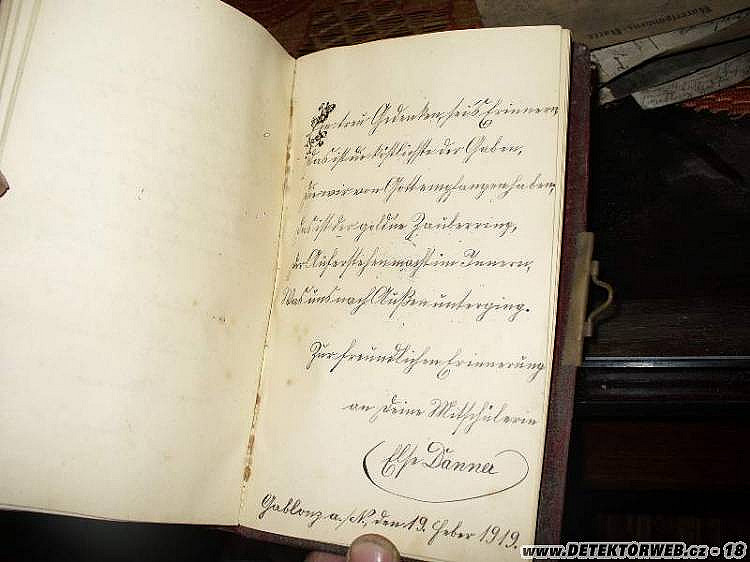 treu Gedenken, Erinnern,
das ist die köstlichste der Gaben,
die wir von Gott empfangen haben,
das ist der goldne Zauberring,
der Auferstehen macht im Innern,
Was uns nach Außen unterging.
Zur freundlichen Erinnerung
an Deine Mitschülerin
Else Danner
Gablonz a./N., den 19. Feber 1919.
www.DETEKTORWEB.cz - 18